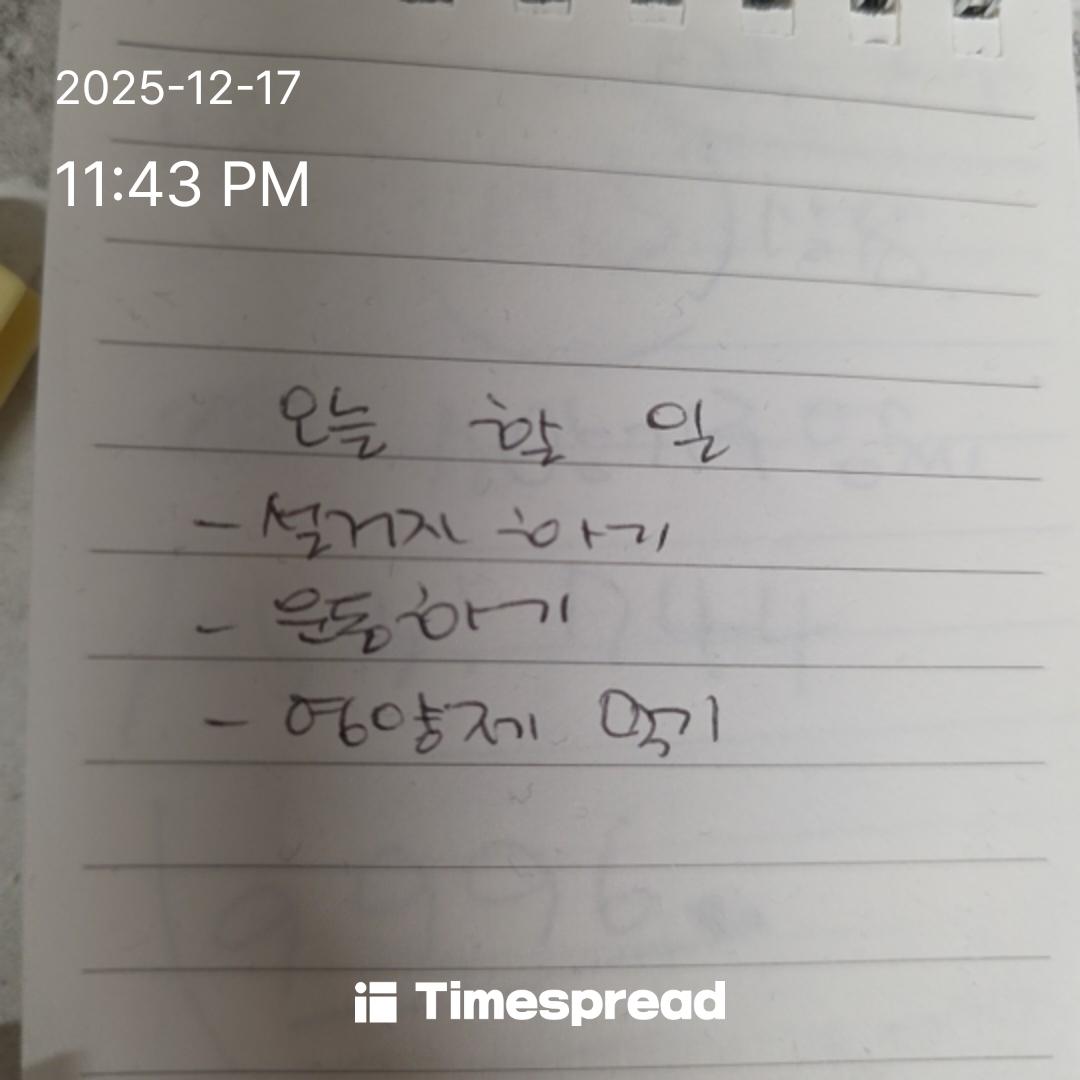 2025-12-17
11:43 PM
오늘 할 일
- 설거지 하기
- 운동하기
- 영양제 먹기
Timespread